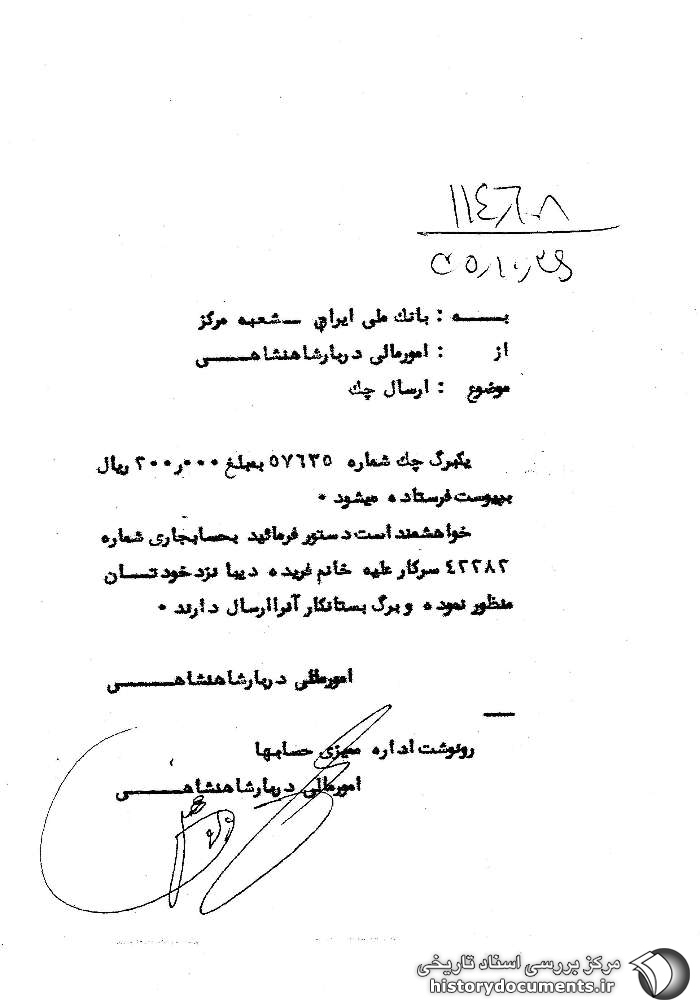 ۱۱٤٦٠۸
۲۵٫۱۰٫۲۶
بـــه : بانك ملی ایران ــ شعبه مرکز
از : امورمالی دربارشاهنشاهـــی
موضوع : ارسال چك
یکبرگ چك شماره ٥٧٦٣٥ بمبلغ ۲۰۰٫۰۰۰ ریال
بپیوست فرستاده میشود ۰
خواهشمند است دستور فرمائید بحسابجاری شماره
٤٢٢٨٢ سرکار علیه خانم فریده دیبا نزد خودتــان
منظور نموده و برگ بستانکار آنرا ارسال دارند ۰
امورمالی دربارشاهنشاهـــی
رونوشت اداره ممیزی حسابها
امورمالی دربارشاهنشاهـــی
مرکز بررسی اسناد تاریخی
historydocuments.ir